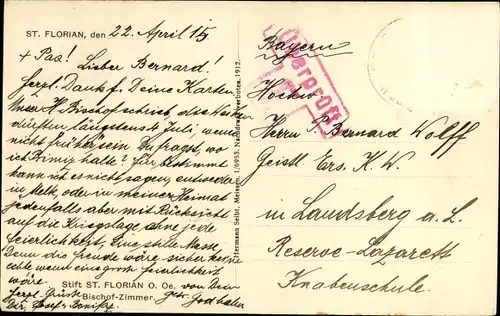 ST. FLORIAN, den 22. April 15
+ Pax!
Lieber Bernard!
Herzl. Dank f. Deine Karten
Unser H. Bischof schrieb, dass
dürften längstens 4. Juli, wenn
nicht früher sein. Du fragst, wo
ich Primiz halte? Für bestimmt
kann ich es nicht sagen, entweder
in Melk oder in meiner Heimat
jedenfalls aber mit Rücksicht
auf die Kriegslage ohne jede
Feierlichkeit, Eine stille Messe,
Denn die Freude wäre sicher keine
echte wenn eine große Feierlichkeit
wäre.
Stift ST. FLORIAN O. Oe. von Deinem
Bischof-Zimmer.
Herzl. Grüße
Dir Josef
Hermann Seibt, Meissen, 1/6953. Nachdruck verboten. 1912.
Überprüft
Bayern
Hochw.
Herrn P. Bernard Wolff
Geistl. Ers. K. W.
in Landsberg a. L.
Reserve-Lazarett
Knabenschule.